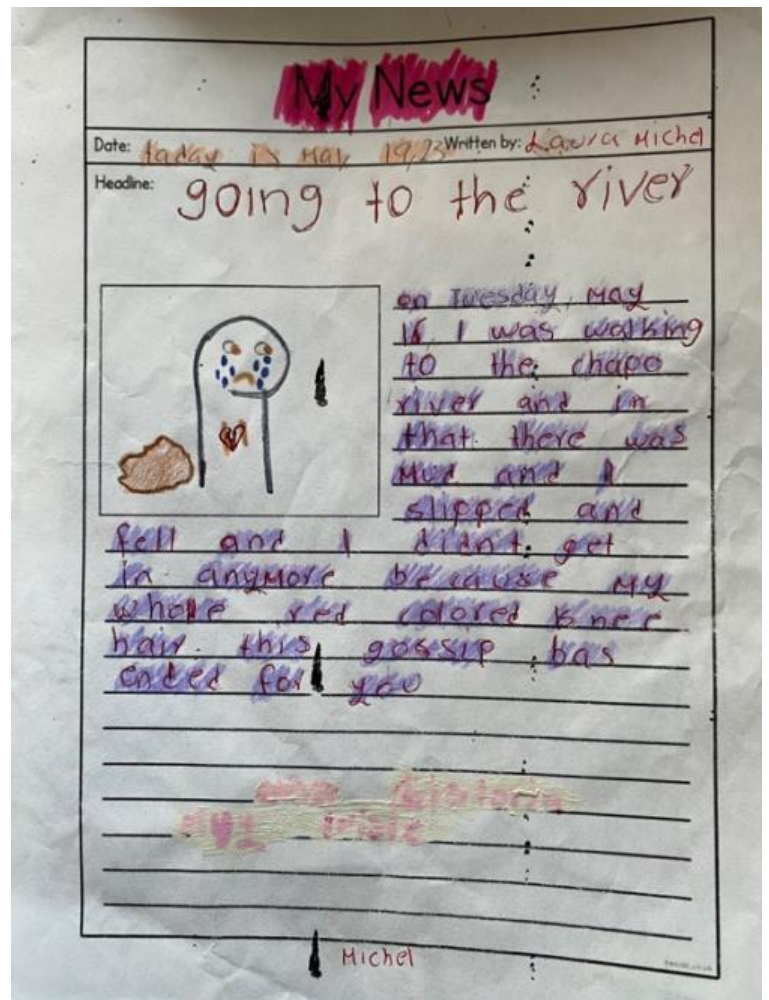 My News
Date: taday is May 19,23 Written by: Laura Michel
Headline: going to the river
on Tuesday, May
I was walking
to the chapo
river and in
that there was
Mud and I
slipped and
fell and I didn't get
in anymore because my
whole red colored knee
hair. this gossip has
ended for you
una historia
muy triste
Michel